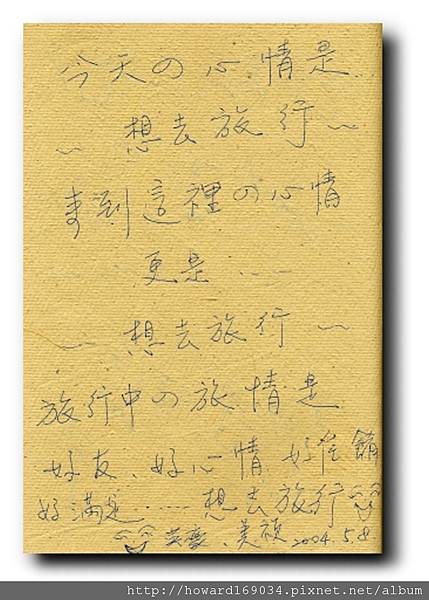 今天の心情是
~想去旅行~
來到這裡の心情
更是……
~想去旅行~
旅行中の旅情是
好友、好心情、好食餚
好滿足……想去旅行
美禎 2004.5.8
http://howard169034.pixnet.net/album